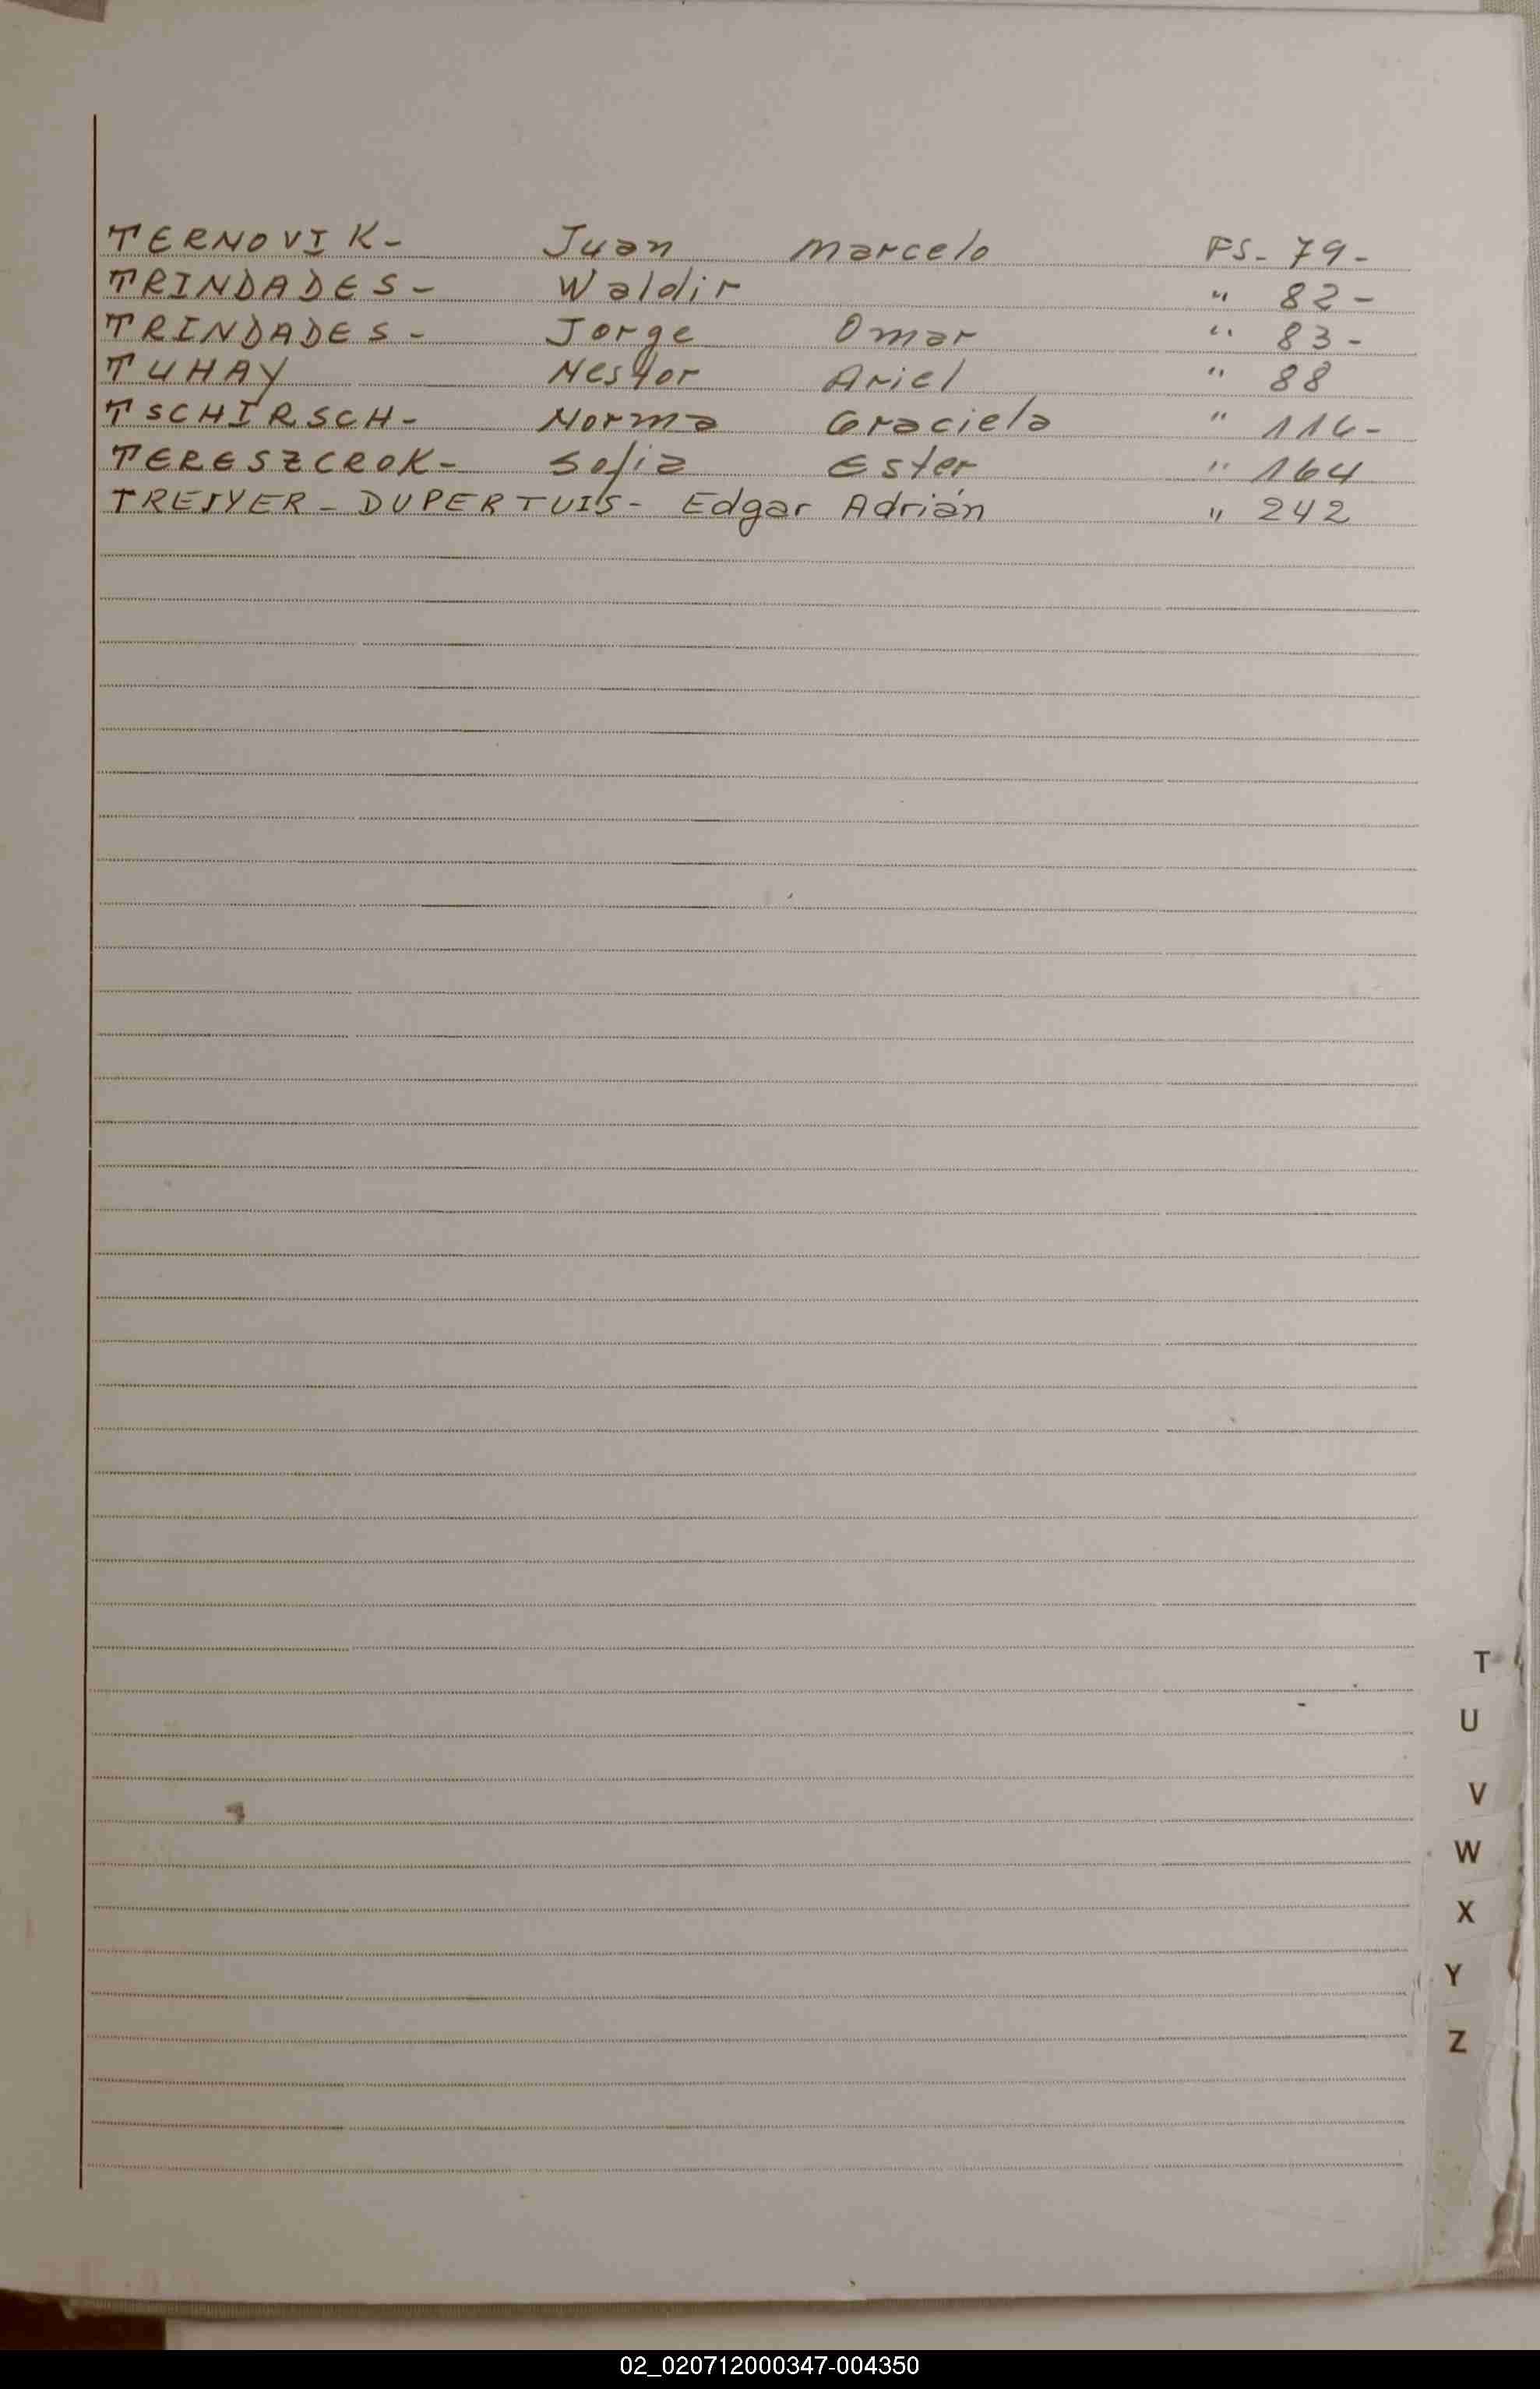 TERNOVIK- Juan Marcelo FS- 79-
TRINDADES- Waldir " 82-
TRINDADES- Jorge Omar " 83-
TUHAY Nestor Ariel " 88
TSCHIRSCH- Norma Graciela " 116-
TERESZCROK- Sofia Ester " 164
TREIYER-DUPERTUIS- Edgar Adrián " 242
T
U
V
W
X
Y
Z
02_020712000347-004350